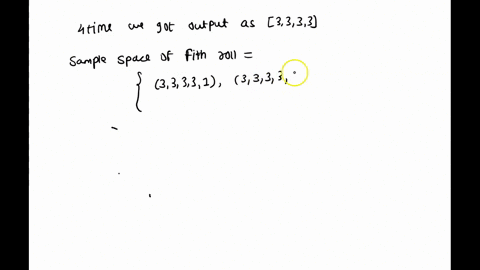 4time we got output as [3,3,3,3]
Sample space of fith roll =
{ (3,3,3,3,1), (3,3,3,3,